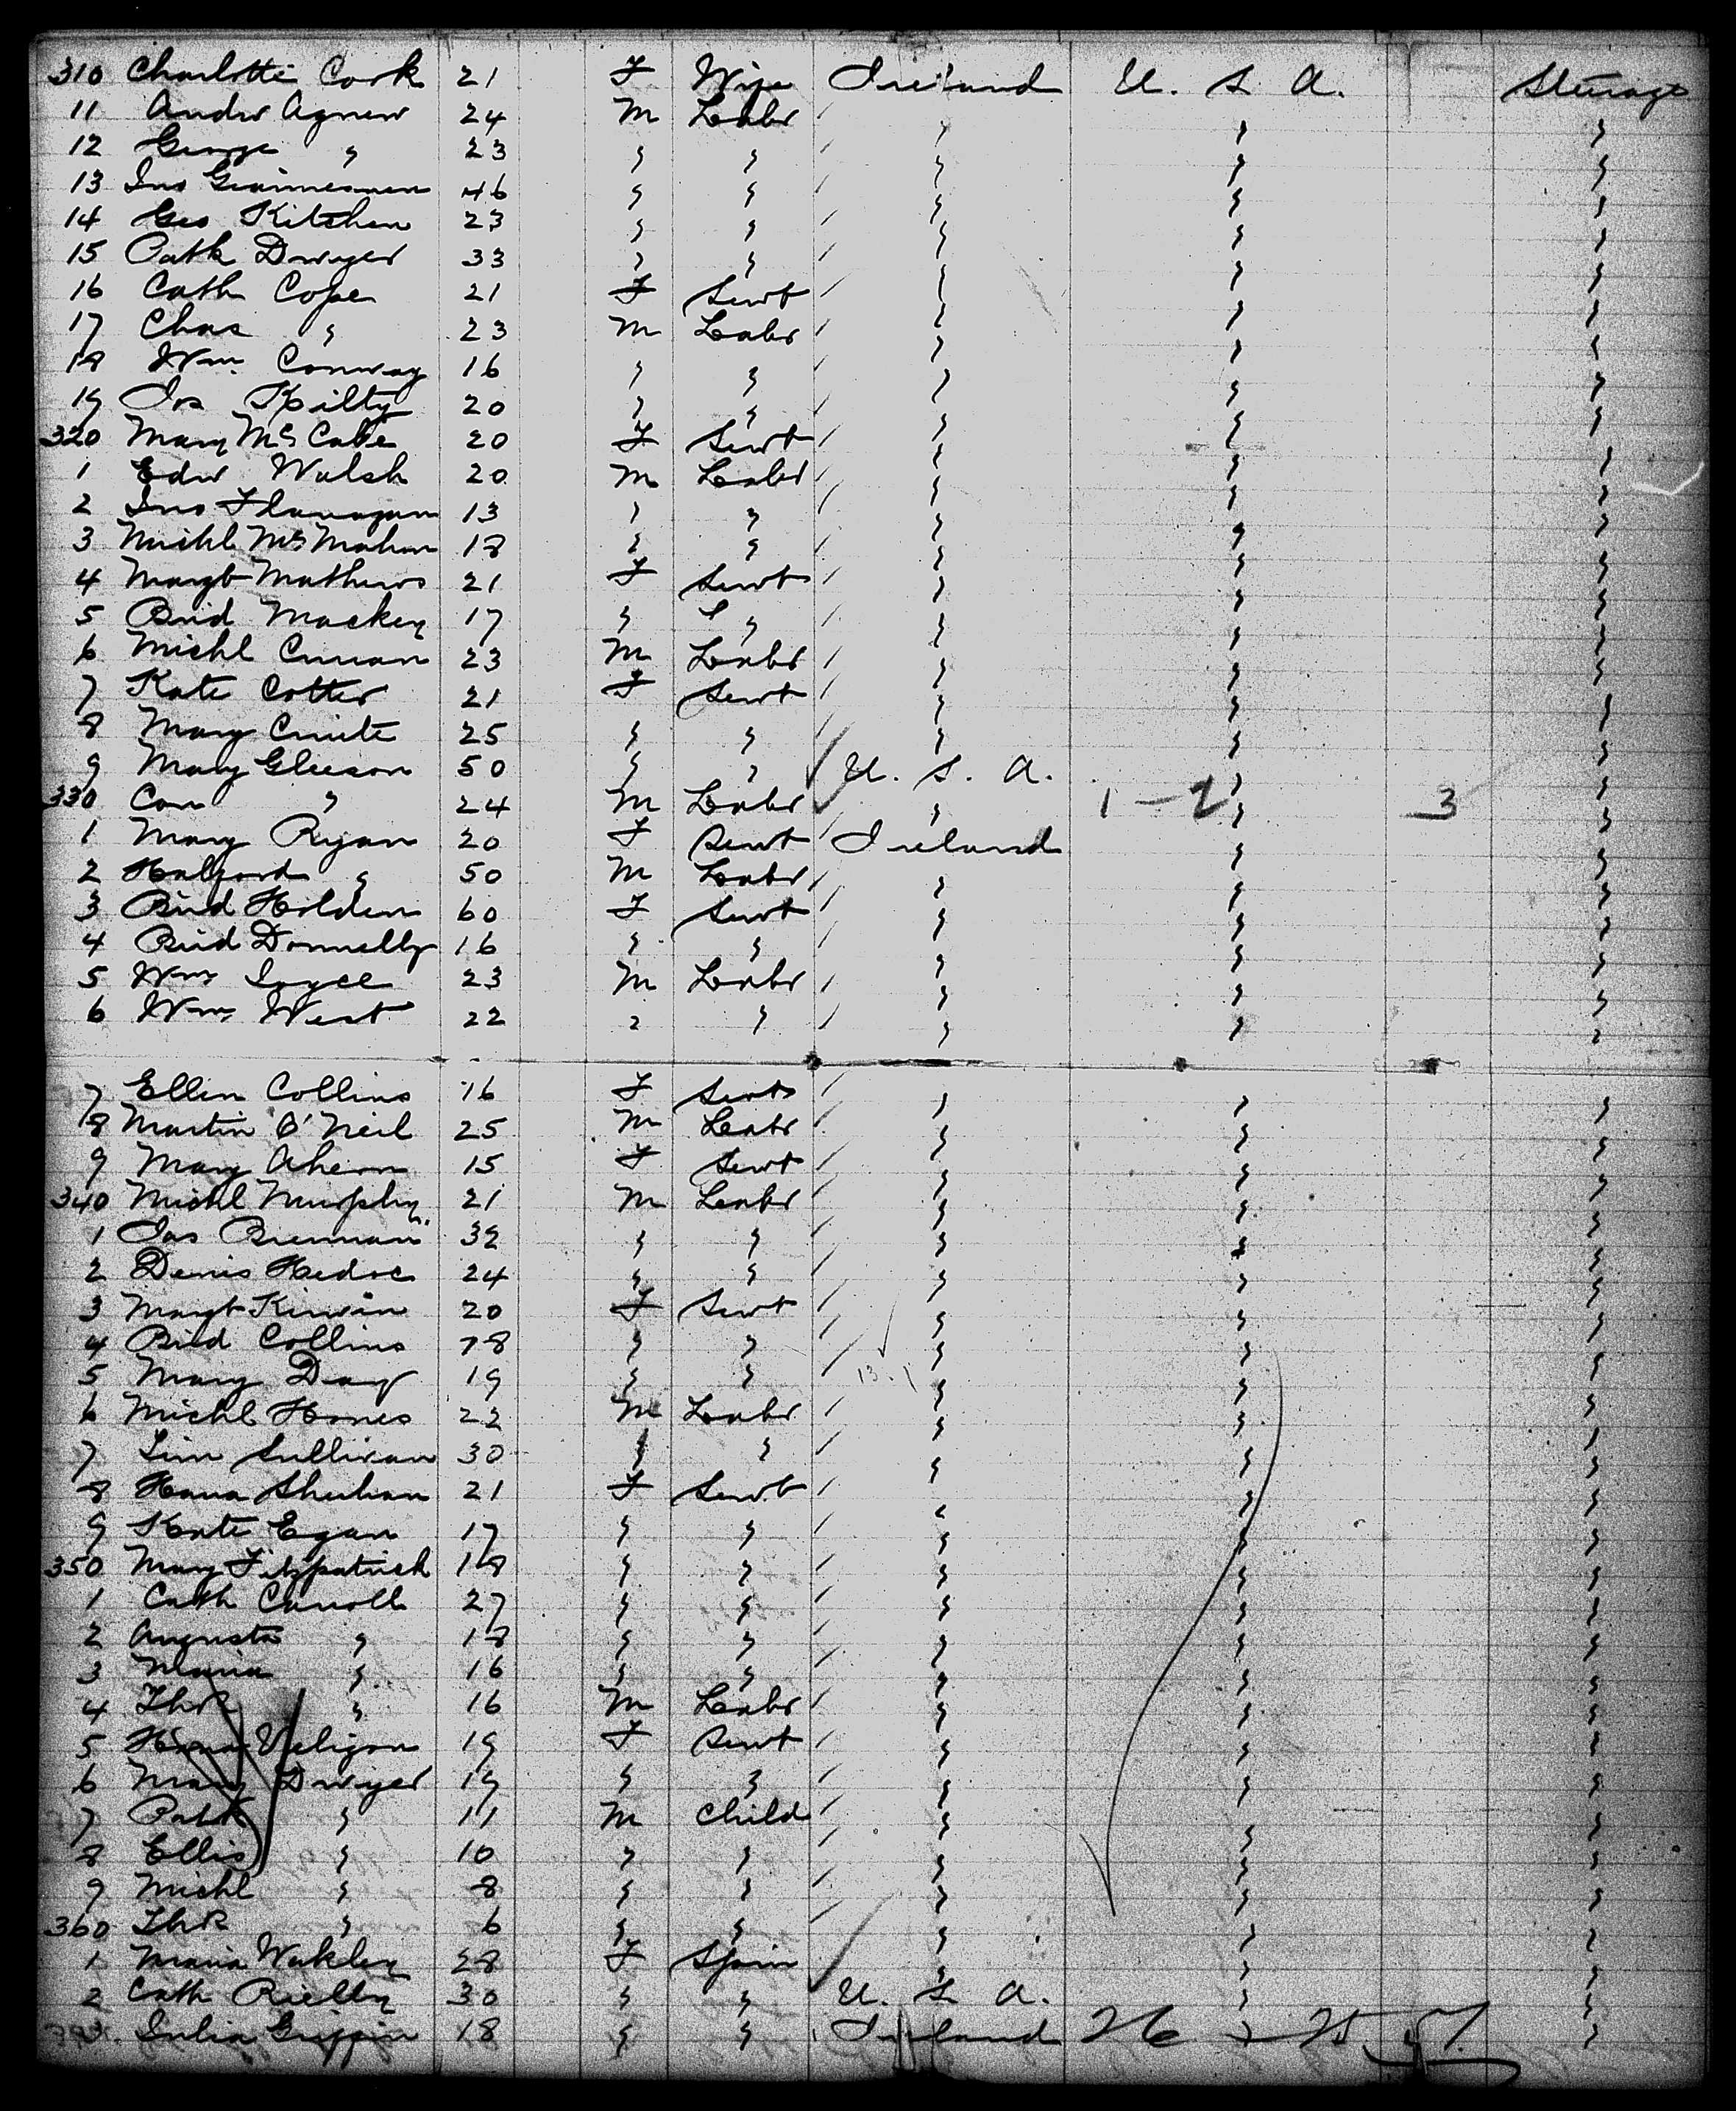 310 Charlotte Cook 21 F Wife Ireland U. S. A. Steerage
11 Andw Agnew 24 M Labr " " "
12 George " 23 " " " " "
13 Jno 46 " " " " "
14 Geo Kitchen 23 " " " " "
15 Patk Dwyer 33 " " " " "
16 Cath Cope 21 F Servt " " "
17 Chas " 23 M Labr " " "
18 Wm. Conway 16 " " " " "
19 Jos Kilty 20 " " " " "
320 Mary McCabe 20 F Servt " " "
1 Edw Walsh 20 M Labr " " "
2 Jno Flanagan 13 " " " " "
3 Michl McMahon 18 " " " " "
4 Margt Mathews 21 F Servt " " "
5 Brid Mackey 17 " " " " "
6 Michl Curran 23 M Labr " " "
7 Kate Cotter 21 F Servt " " "
8 Mary 25 " " " " "
9 Mary Gleeson 50 " " U. S. A. " "
330 Con " 24 M Labr " 1 - 2 " 3 "
1 Mary Ryan 20 F Servt Ireland " "
2 " 50 M Labr " " "
3 Brid Holden 60 F Servt " " "
4 Brid Donnelly 16 " " " " "
5 Wm Joyce 23 M Labr " " "
6 Wm. West 22 " " " " "
7 Ellen Collins 16 F Servt " " "
18 Martin O'Neil 25 M Labr " " "
9 Mary Ahern 15 F Servt " " "
340 Michl Murphy 21 M Labr " " "
1 Jas Brennan 32 " " " " "
2 Denis 24 " " " " "
3 Margt Kirwin 20 F Servt " " "
4 Brid Collins 78 " " " " "
5 Mary Day 19 " " " " "
6 Michl Hones 22 M Labr " " "
7 Tim Sullivan 30 " " " " "
8 Hana Sheehan 21 F Servt " " "
9 Kate Egan 17 " " " " "
350 Mary Fitzpatrick 18 " " " " "
1 Cath Carroll 27 " " " " "
2 Augusta " 18 " " " " "
3 Maria " 16 " " " " "
4 Thos " 16 M Labr " " "
5 19 F Servt " " "
6 Mary Dwyer 19 " " " " "
7 Patk " 11 M Child " " "
8 Ellis " 10 " " " " "
9 Michl " 8 " " " " "
360 Thos " 6 " " " " "
1 Maria Wakley 28 F Spin " " "
2 Cath Rielly 30 " " U. S. A. " "
3 Julia Griffin 18 " " Ireland 26 "